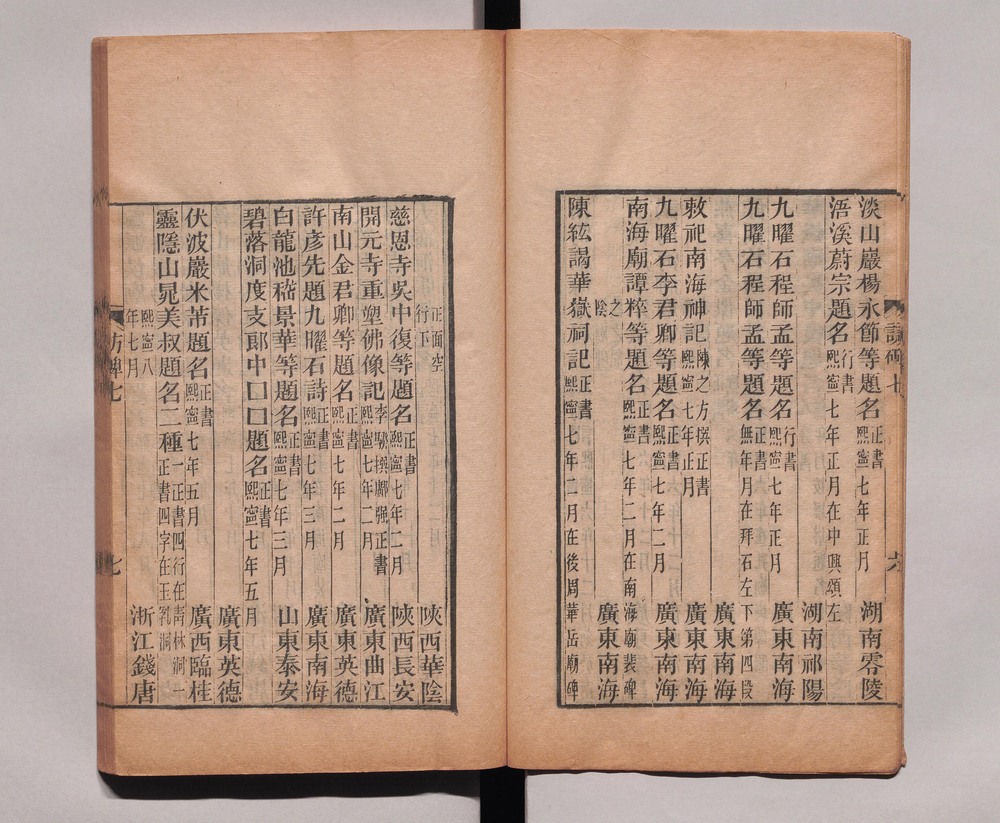 淡山巖楊永節等題名 正書 熙寧七年正月 湖南零陵
浯溪蔚宗題名 行書 熙寧七年正月在中興頌左
湖南祁陽
九曜石程師孟等題名 行書 熙寧七年正月 廣東南海
九曜石程師孟等題名 正書 無年月在拜石左下第四段
廣東南海
敕祀南海神記 陳之方撰正書 熙寧七年正月 廣東南海
九曜石李君卿等題名 正書 熙寧七年二月 廣東南海
南海廟譚粹等題名 正書 熙寧七年二月在南海廟裴碑
之陰 廣東南海
陳紘謁華嶽祠記 正書 熙寧七年二月在後周華岳廟碑
正面空行下 陝西華陰
慈恩寺吳中復等題名 正書 熙寧七年二月 陝西長安
開元寺重塑佛像記 李驎撰 正書 熙寧七年二月 廣東曲江
南山金君卿等題名 正書 熙寧七年二月 廣東英德
許彥先題九曜石詩 正書 熙寧七年三月 廣東南海
白龍池嵇景華等題名 正書 熙寧七年三月 山東泰安
碧落洞度支郎中口口題名 正書 熙寧七年五月
廣東英德
伏波巖米芾題名 正書 熙寧七年五月 廣西臨桂
靈隱山晁美叔題名二種 一正書四行在青林洞一正書四字在玉乳洞
熙寧八年七月 浙江錢唐
訪碑七 六
訪碑七 七